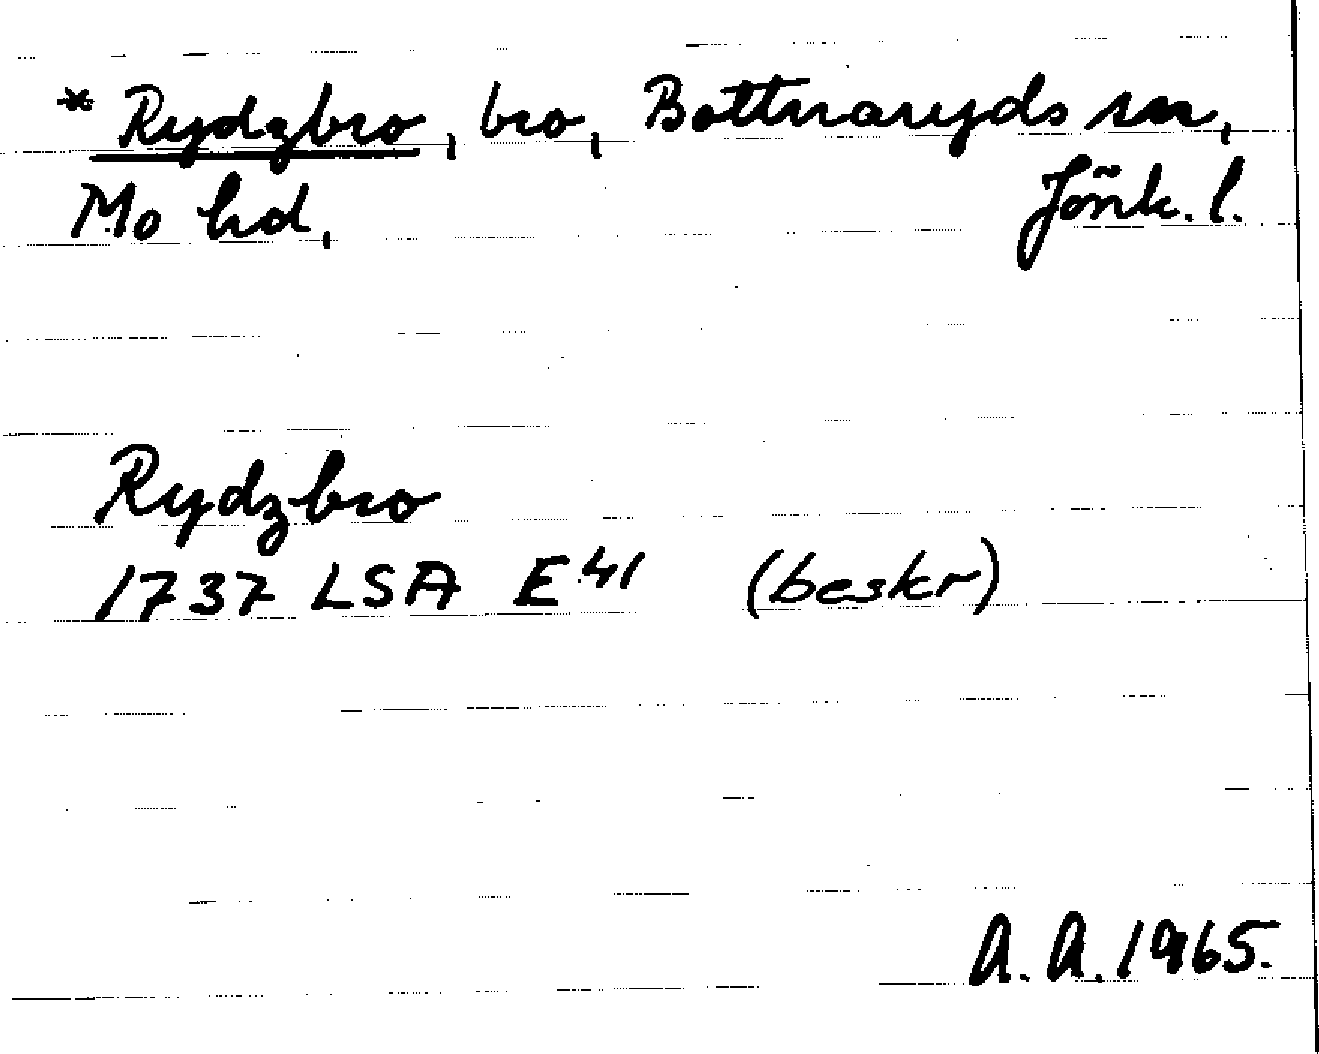 * Rydzbro, bro, Bottnaryds sn,
Mo hd, Jönk. l.
Rydzbro
1737 LSA E 41 (beskr)
A. A. 1965.